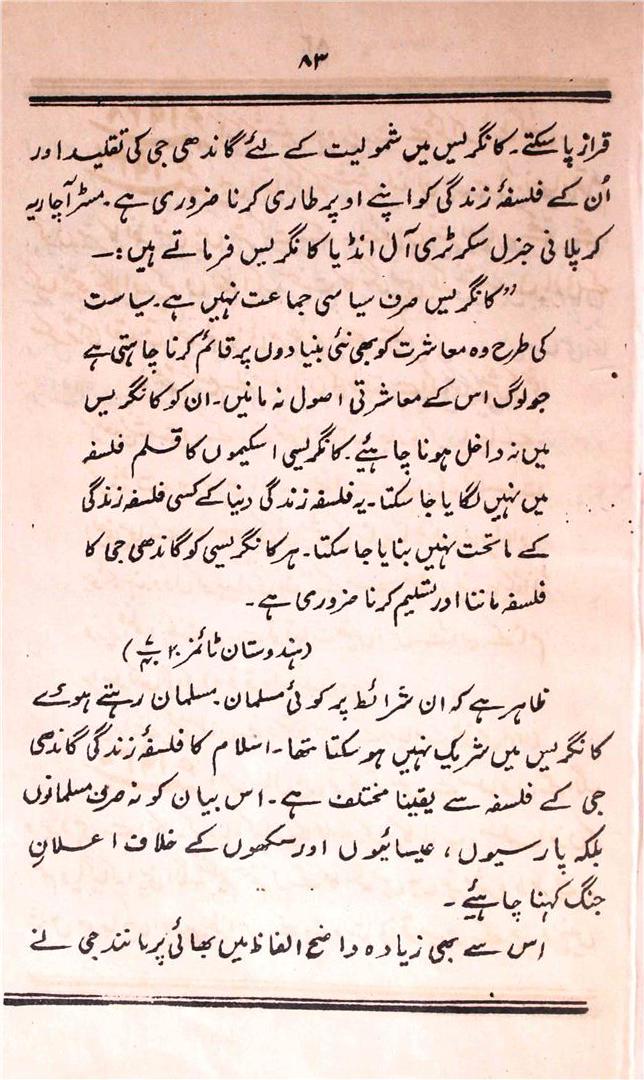 ۸۳
قرار پا سکتے۔ کانگریس میں شمولیت کے لئے گاندھی جی کی تقلید اور
اُن کے فلسفۂ زندگی کو اپنے اوپر طاری کرنا ضروری ہے۔ مسٹر آچاریہ
کرپلانی جنرل سکرٹری آل انڈیا کانگریس فرماتے ہیں:۔
”کانگریس صرف سیاسی جماعت نہیں ہے۔ سیاست
کی طرح وہ معاشرت کو بھی نئی بنیادوں پر قائم کرنا چاہتی ہے
جو لوگ اس کے معاشرتی اصول نہ مانیں۔ ان کو کانگریس
میں نہ داخل ہونا چاہئیے۔ کانگریسی اسکیموں کا قلم فلسفہ
میں نہیں لگایا جا سکتا۔ یہ فلسفہ زندگی دنیا کے کسی فلسفہ زندگی
کے ماتحت نہیں بنایا جا سکتا۔ ہر کانگریسی کو گاندھی جی کا
فلسفہ ماننا اور تسلیم کرنا ضروری ہے۔
(ہندوستان ٹائمز
ظاہر ہے کہ ان شرائط پر کوئی مسلمان۔ مسلمان رہتے ہوئے
کانگریس میں شریک نہیں ہو سکتا تھا۔ اسلام کا فلسفۂ زندگی گاندھی
جی کے فلسفہ سے یقینا مختلف ہے۔ اس بیان کو نہ صرف مسلمانوں
بلکہ پارسیوں، عیسائیوں اور سکھوں کے خلاف اعلانِ
جنگ کہنا چاہئیے۔
اس سے بھی زیادہ واضح الفاظ میں بھائی پرمانند جی نے